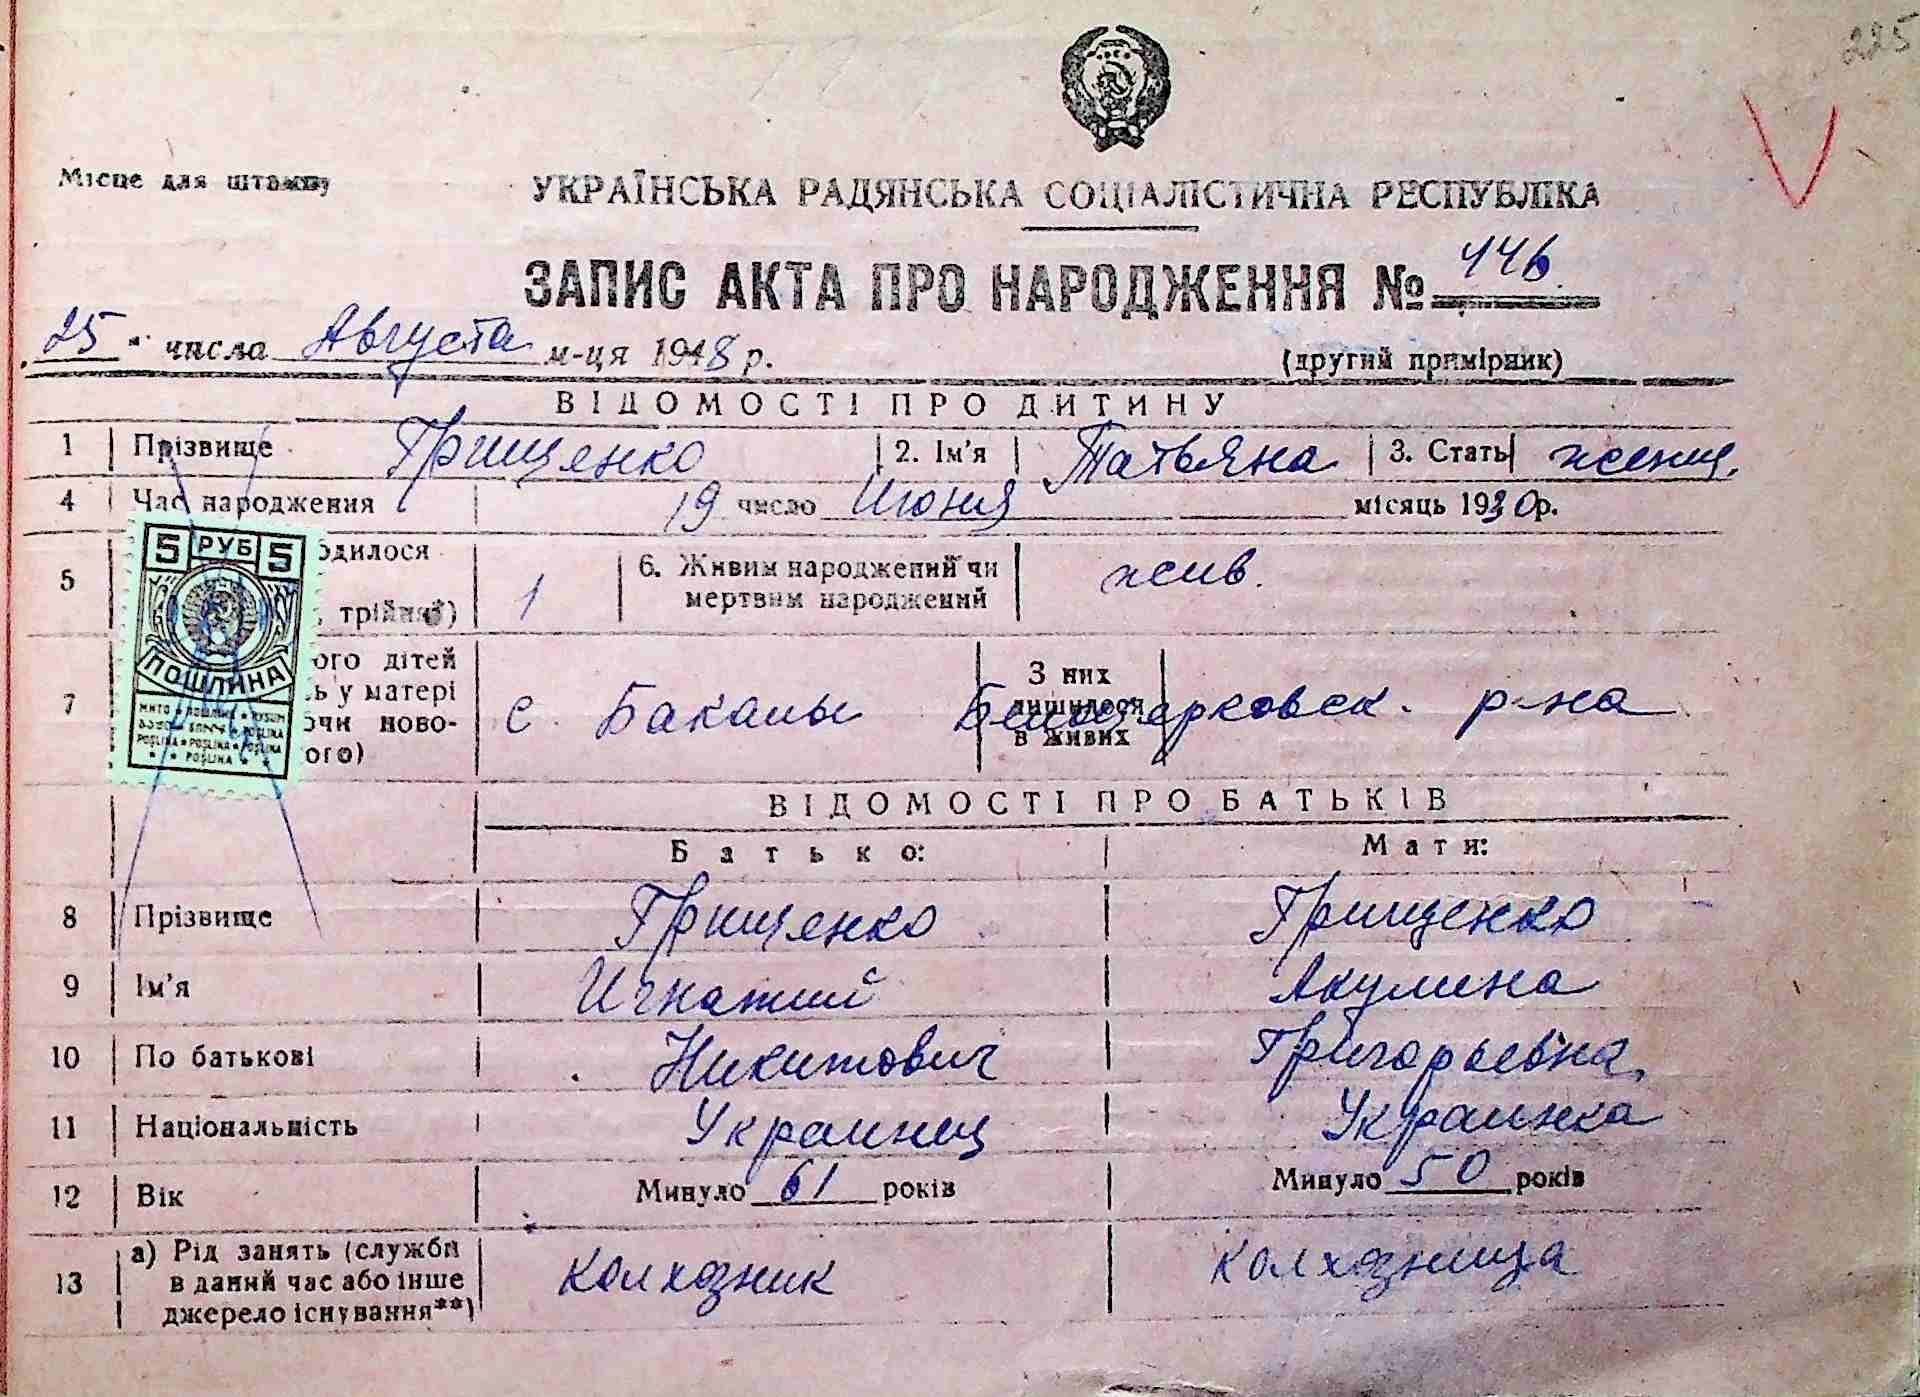 225
Місце для штампу
УКРАЇНСЬКА РАДЯНСЬКА СОЦІАЛІСТИЧНА РЕСПУБЛІКА
ЗАПИС АКТА ПРО НАРОДЖЕННЯ № 446
25 " числа Августа м-ця 1948 р.
(другий примірник)
ВІДОМОСТІ ПРО ДИТИНУ
1 Прізвище Грищенко 2. Ім'я Татьяна 3. Стать женщ.
4 Час народження 19 число Июня місяць 1930р.
5 одилося
, трійня*) 1 6. Живим народжений чи
мертвим народжений жив.
5 РУБ 5
ПОШЛИНА
7 ого дітей
ь у матері
ючи ново-
ого) З них
лишилося
в живих
с. Бакалы Белоцерковск. р-на
ВІДОМОСТІ ПРО БАТЬКІВ
Батько: Мати:
8 Прізвище Грищенко Грищенко
9 Ім'я Игнатий Акулина
10 По батькові Никитович Григорьевна
11 Національність Украинец Украинка
12 Вік Минуло 61 років Минуло 50 років
13 а) Рід занять (служби
в даний час або інше
джерело існування**) колхозник колхозница